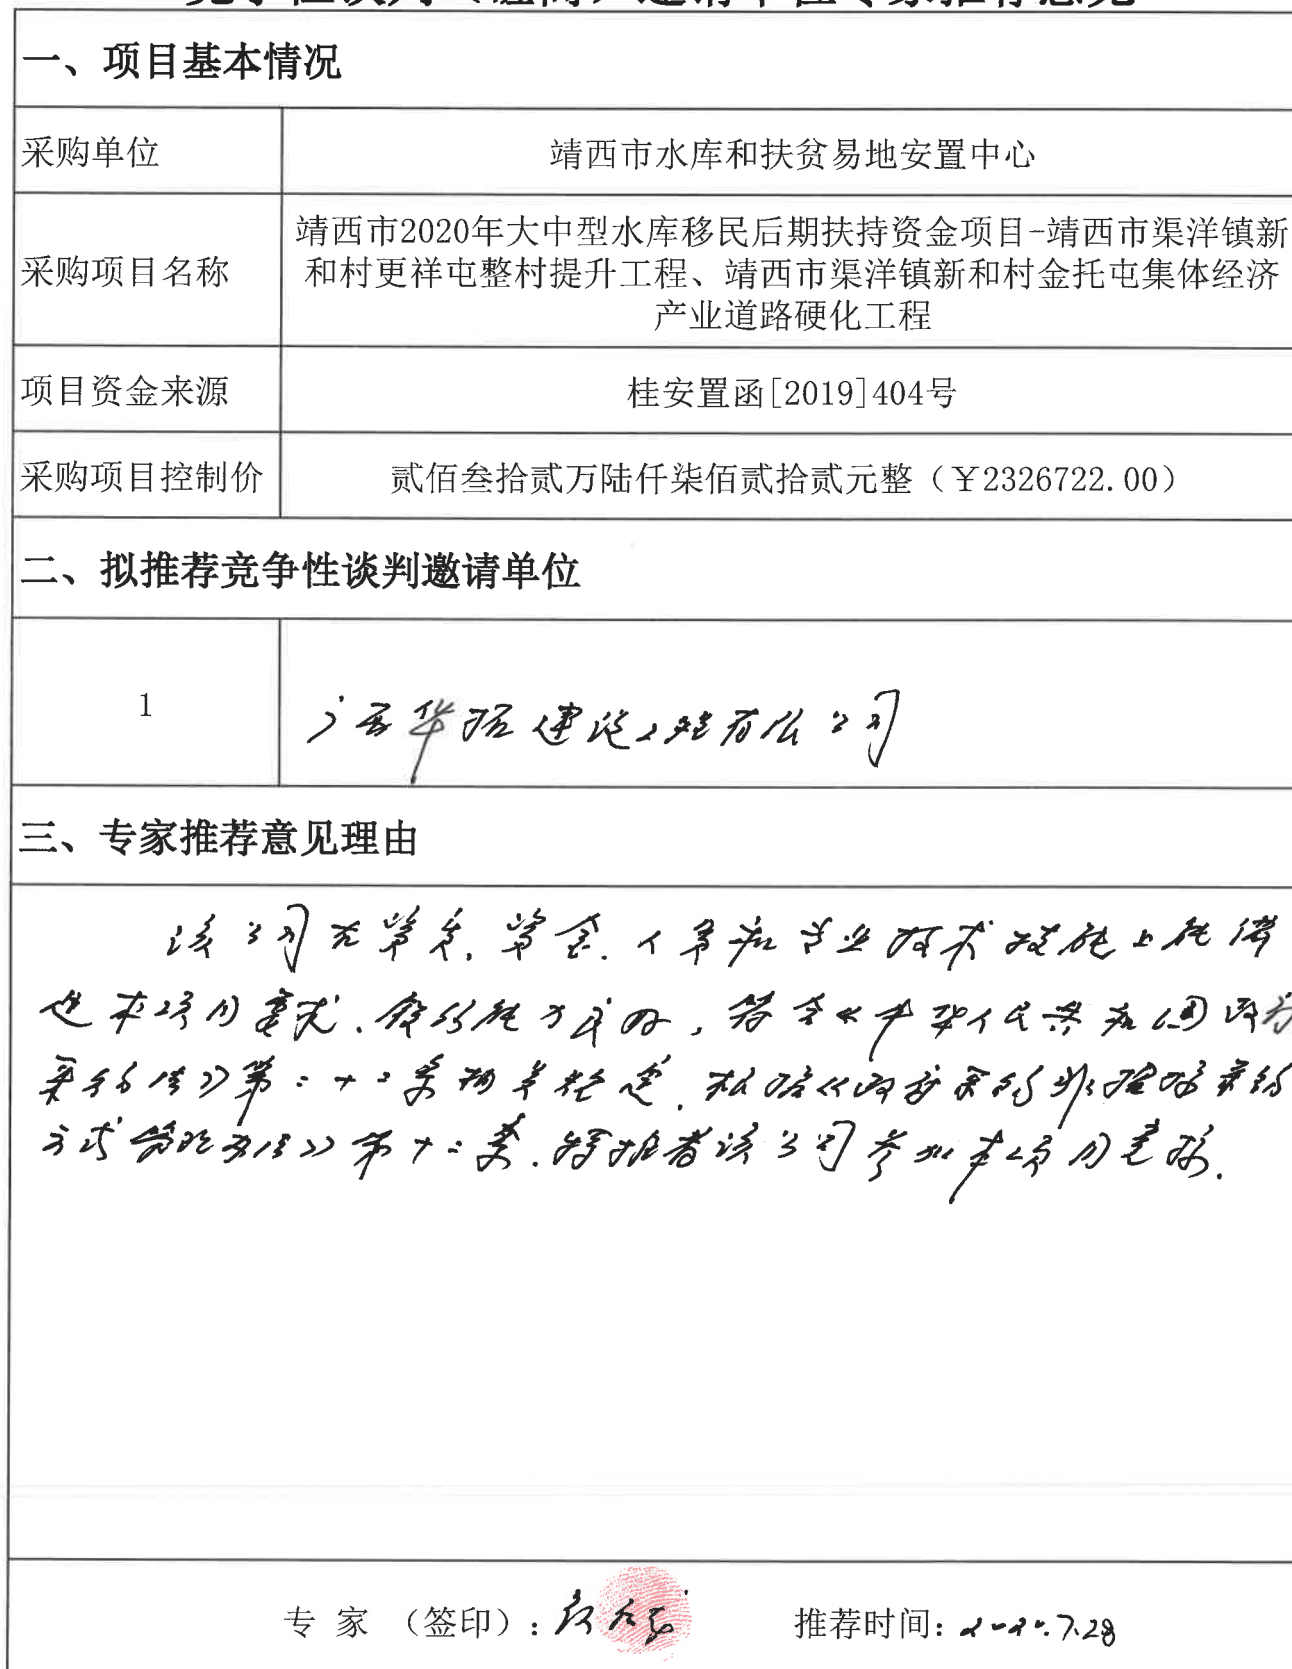 竞争性谈判（磋商）邀请单位专家推荐意见
一、项目基本情况
采购单位
靖西市水库和扶贫易地安置中心
采购项目名称
靖西市2020年大中型水库移民后期扶持资金项目-靖西市渠洋镇新
和村更祥屯整村提升工程、靖西市渠洋镇新和村金托屯集体经济
产业道路硬化工程
项目资金来源
桂安置函[2019]404号
采购项目控制价
贰佰叁拾贰万陆仟柒佰贰拾贰元整（￥2326722.00）
二、拟推荐竞争性谈判邀请单位
1
广西华拓建设工程有限公司
三、专家推荐意见理由
该公司在资质、资金、人员和专业技术技能上能满
足本项目要求、履约能力良好，符合《中华人民共和国政府
采购法》第二十二条相关规定，根据《政府采购非招标采购
方式管理办法》第十二条，特推荐该公司参加本项目竞标.
专 家 （签印）:
推荐时间: 2020.7.28